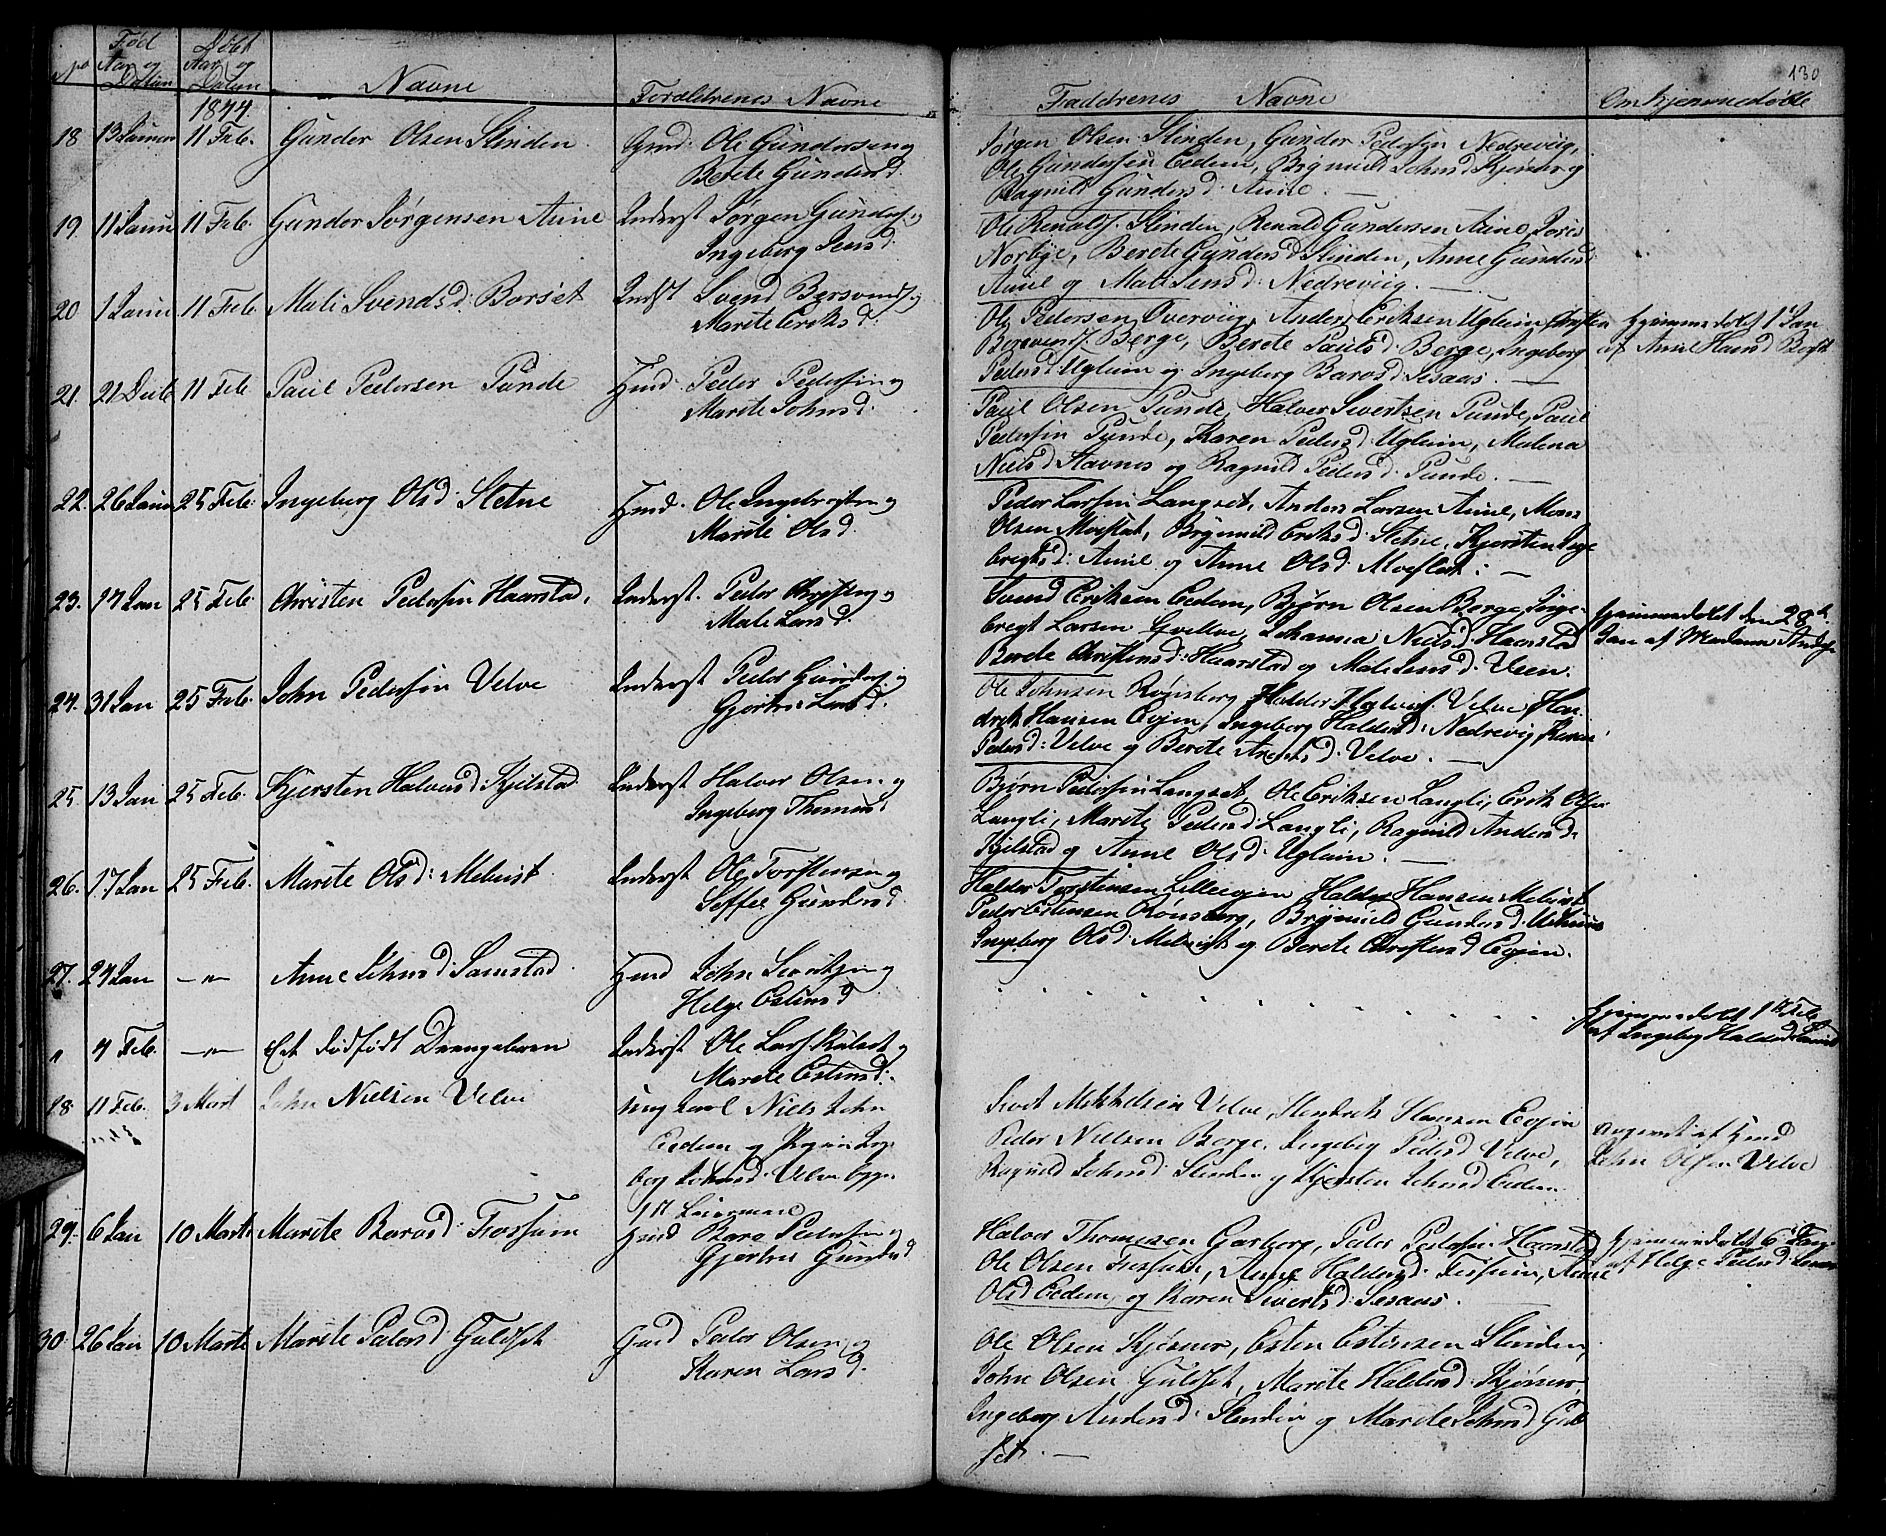 No
Fød Aar og Datum
Døbt Aar og Datum
Navne
Forældrenes Navne
Faddrenes Navne
Om hjemmedøbte
130
1844
18 13 Januar 11 Feb. Gunder Olsen Slinden Gmd. Ole Gundersen og
Berete Gundersd.
Jørgen Olsen Slinden, Gunder Pedersen Nedrevig,
Ole Gundersen Eedem, Brynnild Johnsd Kjøsnes og
Ragnild Gundersd. Aune. —
19. 11 Janu 11 Feb. Gunder Jørgensen Aune Inderst Jørgen Gunders. og
Ingeberg Jensd.
Ole Renalds. Slinden, Renald Gundersen Aune, Jons
Norbye, Berete Gundersd Slinden, Anne Gundersd
Aune og Mali Jensd. Nedrevig. —
20 1 Janu 11 Feb. Mali Svendsd. Borset Indst Svend Bersvends. og
Marite Eriksd.
Ole Pedersen Overvig, Anders Eriksen Uglem,
Bersvends. Berge, Berete Paulsd. Berge, Ingeberg
Pedersd Uglem og Ingeberg Barosd. Sesaas. —
Hjemmedøbt 1 Jan
af Anne Hansd Borset
21. 21 Decb 11 Feb. Paul Pedersen Punde Gmd. Peder Pedersen og
Marite Johnsd.
Paul Olsen Punde, Halvor Sivertsen Punde, Paul
Pedersen Punde, Karen Pedersd Uglem, Malena
Nielsd Stavnes og Ragnild Pedersd. Punde. —
22. 26 Janu 25 Feb. Ingeberg Olsd. Sletne Gmd. Ole Ingebrigtsen og
Marite Olsd.
Peder Larsen Langset, Anders Larsen Aune, Mons
Olsen Moeslet, Brynnild Eriksd. Sletne, Kjersten Inge
brigtsd. Aune og Anne Olsd. Moeslet. —
23. 17 Jan 25 Feb. Christen Pedersen Haarstad, Inderst. Peder Christens. og
Mali Larsd.
Svend Eriksen Eedem, Bjørn Olsen Berge, Inge-
brigt Larsen Hvelve, Johanna Nielsd. Haarstad
Berete Christensd. Haarstad og Mali Jensd. Veen.
Hjemmedøbt den 28de
Jan af Madame
24. 31 Jan 25 Feb. John Pedersen Velve Inderst Peder Gunders. og
Gjertru Larsd.
Ole Johnsen Rønsberg, Haldor Halvors. Velve, Hen-
drik Hansen Evjen, Ingeberg Haldorsd. Nedrevig, Karen
Pedersd. Velve og Berete Arentsd. Velve. —
25 13 Jan 25 Feb. Kjersten Halvorsd. Kjelstad Inderst Halvor Olsen og
Ingeberg Thomasd
Bjørn Pedersen Langset, Ole Eriksen Langli, Erik Olsen
Langli, Marite Pedersd Langli, Ragnild Andersd.
Kjelstad og Anne Olsd. Uglem. —
26. 17 Jan 25 Feb. Marite Olsd. Melvist. Inderst Ole Torstensen og
Goffee Gundersd.
Haldor Torstensen Lilleevjen, Haldor Hansen Melvist
Peder Estensen Rønsberg, Brynnild Gundersd.
Ingeberg Olsd Melvist og Berete Christensd Evjen.
27. 24 Jan —"— Anne Johnsd. Samstad Gmd John Sivertsen og
Helge Estensd
Hjemmedøbt 1ste Feb
af Ingeberg Haldorsd Samst
" 4 Feb. —"— Et dødfødt Drengebarn Inderst Ole Lars. Kulset og
Marite Estensd.
28 11 Feb. 3 Mart John Nielsen Velve Ung Karl Niels John
Eedem og Pigen Inge
berg Johnsd. Velve Opg.
1st Leiermaal
Sivert Mikkelsen Velve, Hendrik Hansen Evjen
Peder Nielsen Berge, Ingeberg Pedersd Velve,
Ragnild Johnsd. Slinden og Kjersten Johnsd Eedem
Angivet af Gmd
John Olsen Velve
29. 6 Jan 10 Marti Marite Barosd. Fossum Gmd Baro Pedersen og
Gjertru Gundersd
Halvor Thomesen Garberg, Peder Pedersen Haarstad
Ole Olsen Fossum, Anne Haldorsd. Fossum, Anne
Olsd Eedem, og Karen Sivertsd. Sesaas.
Hjemmedøbt 6 Jan
af Helge Pedersd.
30. 26 Jan 10 Marti Marite Pedersd Guldset Gmd Peder Olsen og
Karen Larsd.
Ole Olsen Kjøsnes, Esten Estensen Slinden,
John Olsen Guldset, Marite Haldorsd. Kjøsnes,
Ingeberg Andersd. Slinden og Marite Johnsd Guld
set. —